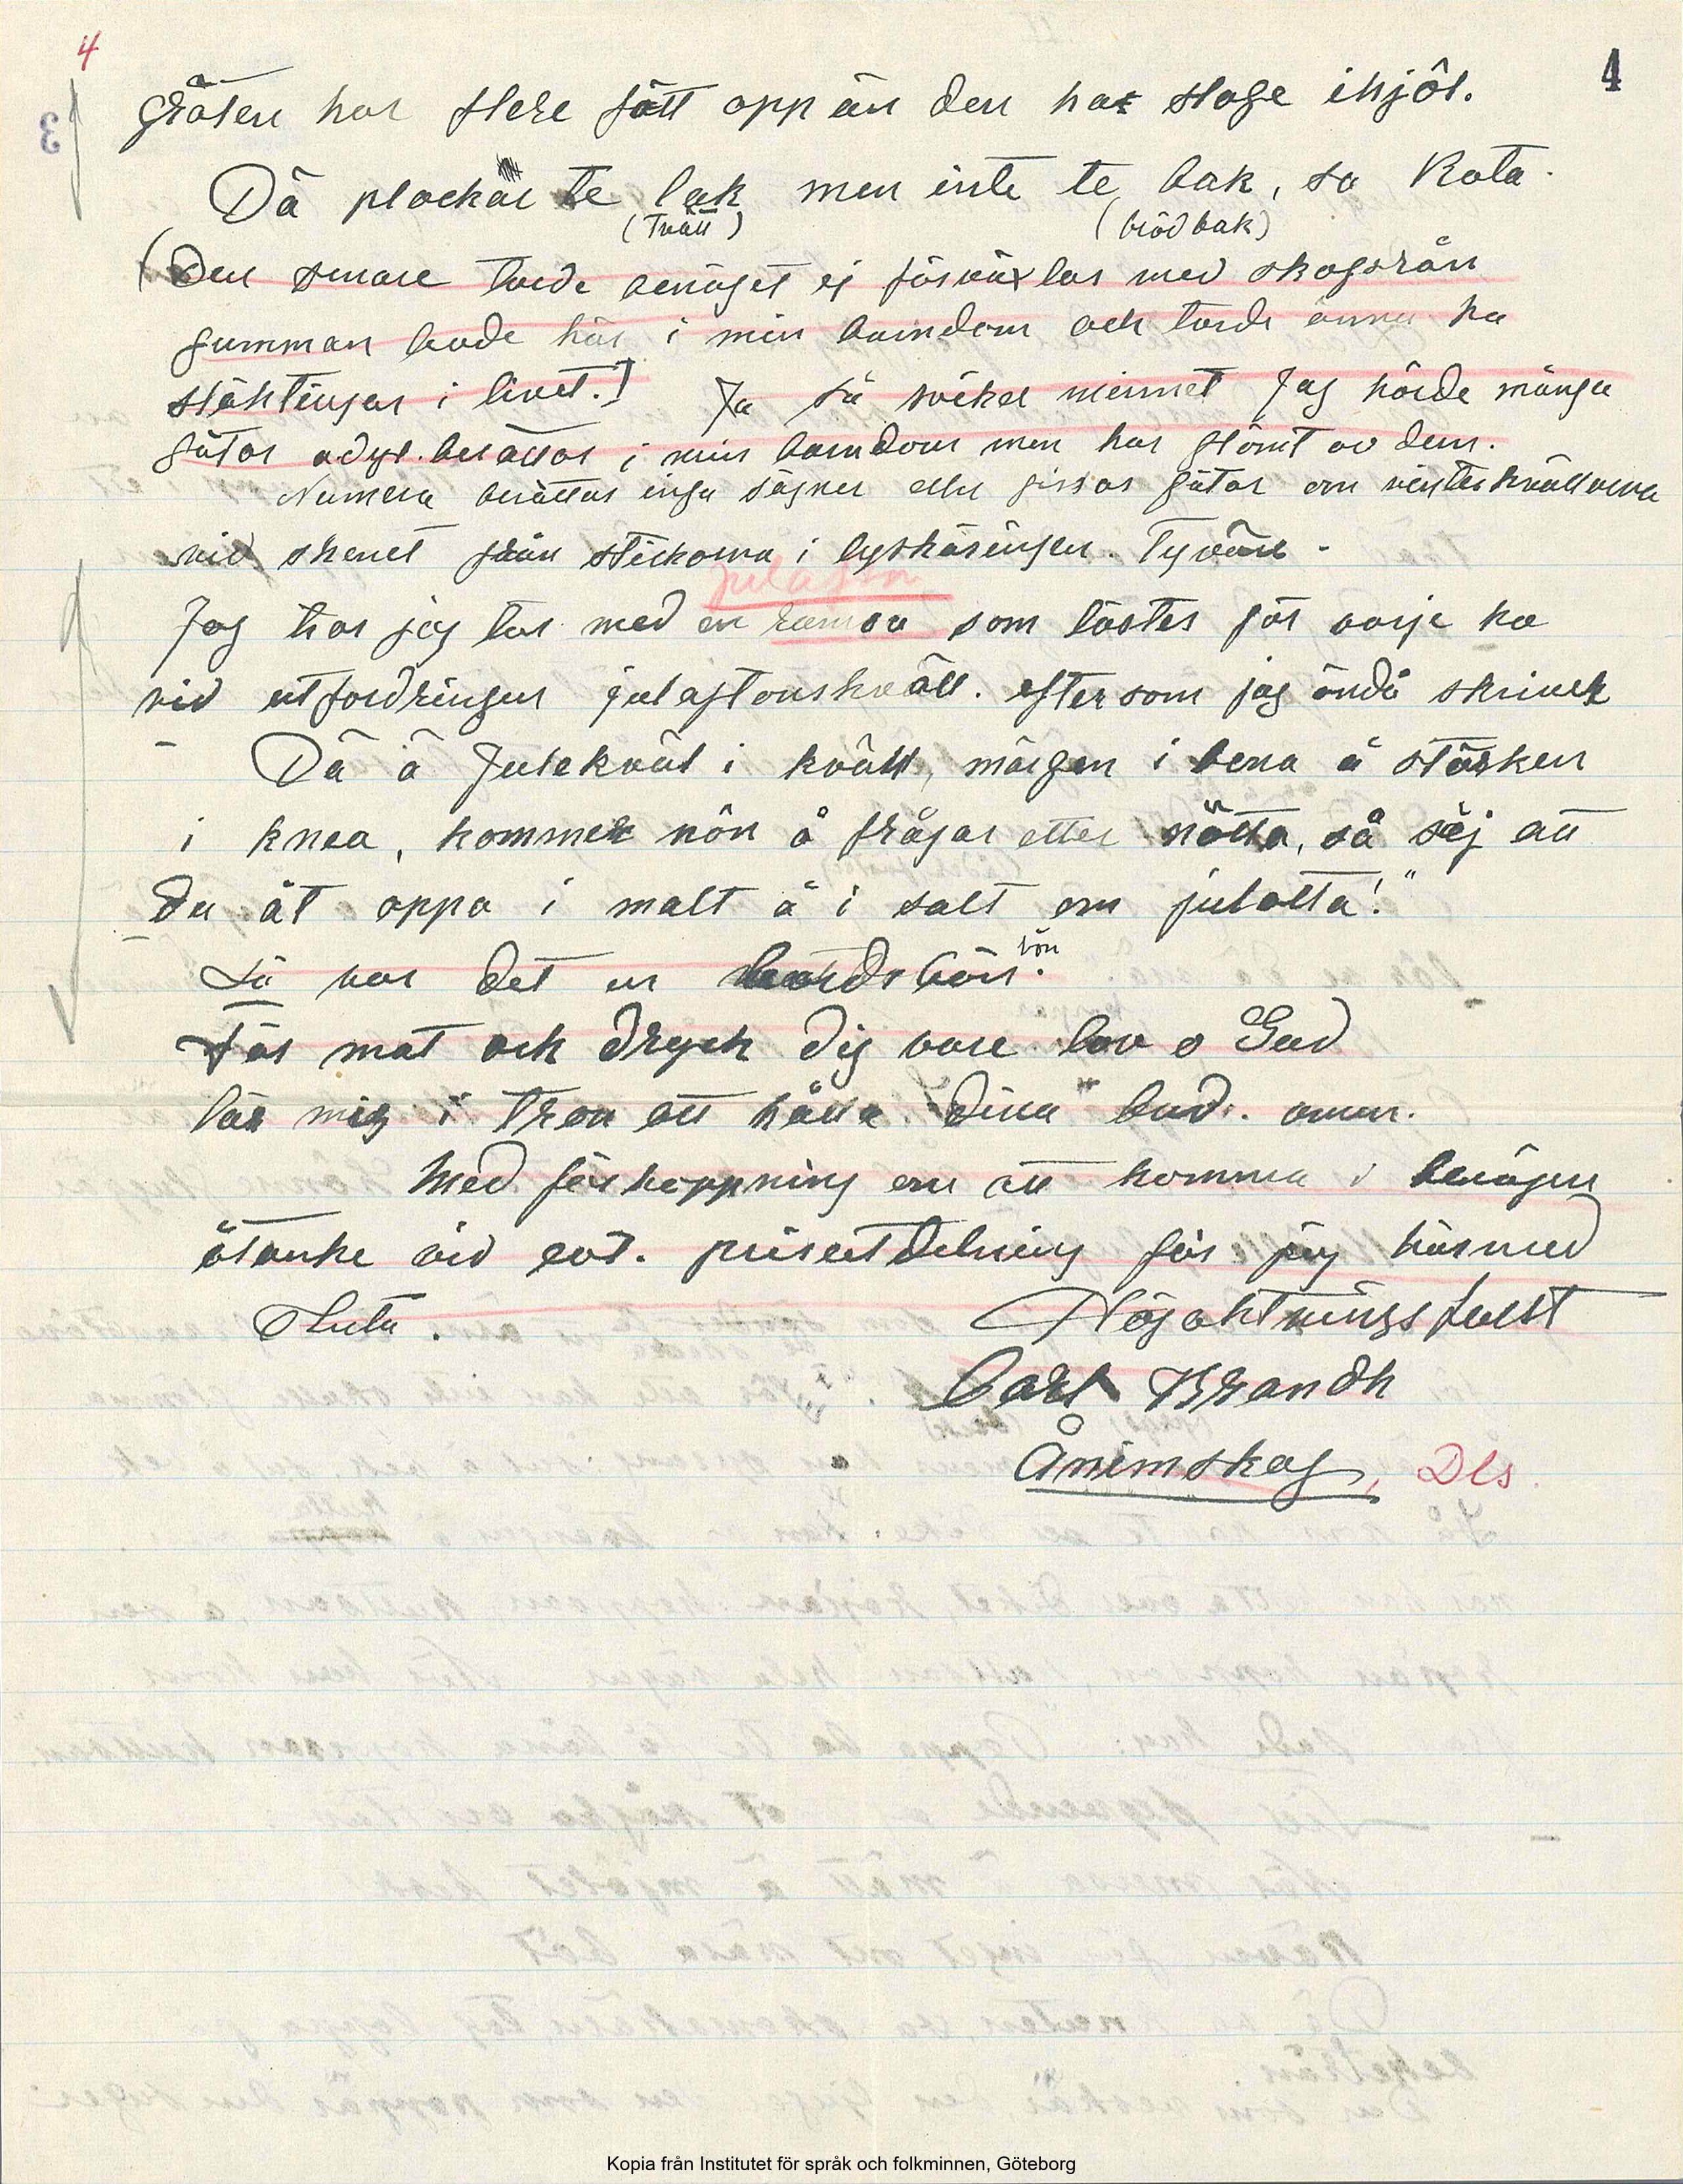 4
4
3
Gråten har flere fått opp än den har slage ihjôl.
Dä plockar te lak men inte te bak, sa Kata.
(Tvätt) (brödbak)
(Den senare torde benäget ej förväxlas med skogsrån
gumman levde här i min barndom och torde ännu ha
släktingar i livet.) Ja så sviker minnet Jag hörde många
gåtor o dyl. berättas i min barndom men har glömt av dem.
Numera berättas inga sägner eller gissas gåtor om vinterkvällarna
vid skenet från stickorna i lyskäringen. Tyvärr.
julafton
Jag tror jag tar med en ramsa som lästes för varje ko
vid utfordringen julaftonskväll. eftersom jag ändå skriver
Dä ä Julekväl i kväll, märgen i bena å stärken
i knea, kommer nôn å frågar etter nôtta, så säj att
du ät oppa i malt å i salt om julotta!"
Så var det en bordsbön.
bön
För mat och dryck dig vare lov o Gud
lär mig i tron att hålla dina bud. amen.
Med förhoppning om att komma i benägen
åtanke vid evt. prisutdelning får jag härmed
Sluta. Högaktningsfullt
Carl Brandh
Ånimskog, Dls
Kopia från Institutet för språk och folkminnen, Göteborg